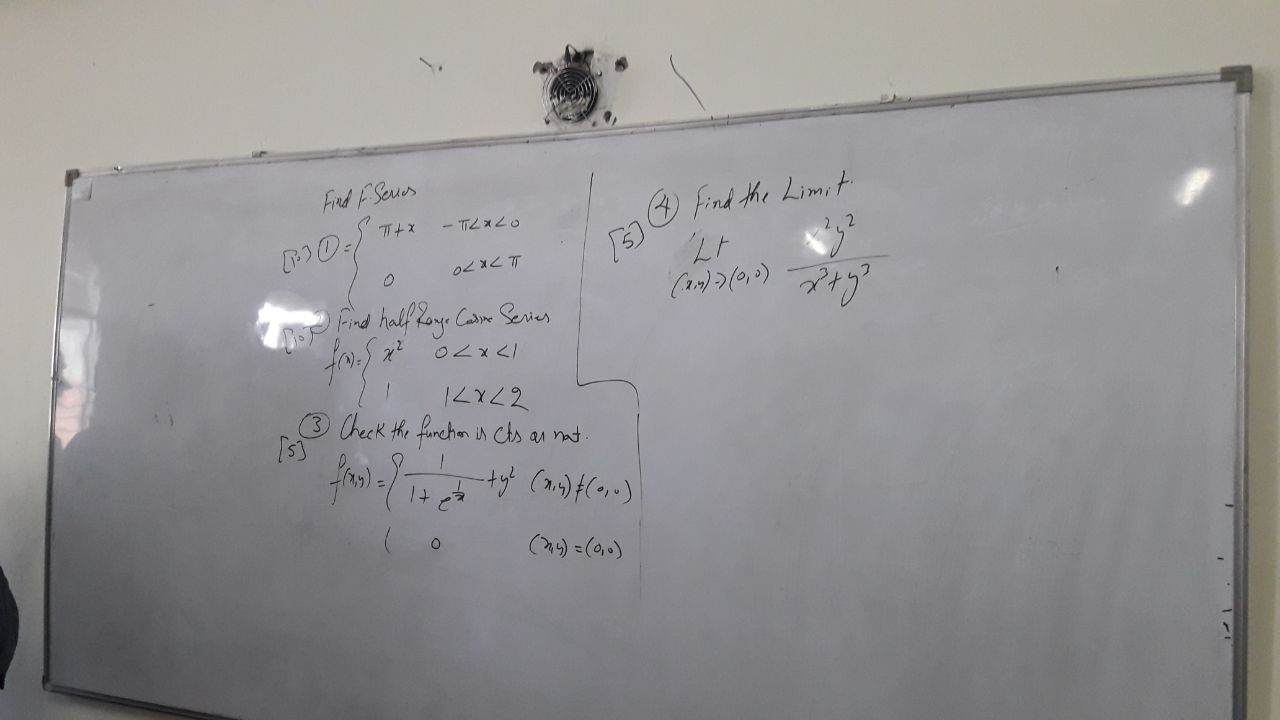 Find F. Series
[10] ① = { π+x -π<x<0
0 0<x<π
[10] Find half Range Cosine Series
f(x) = { x² 0<x<1
1 1<x<2
③ Check the function is cts or not.
[5]
f(x,y) = { 1/(1+e^(1/x)) + y² (x,y)≠(0,0)
0 (x,y)=(0,0)
④ Find the Limit.
[5] Lt x²y²/(x³+y³)
(x,y)→(0,0)